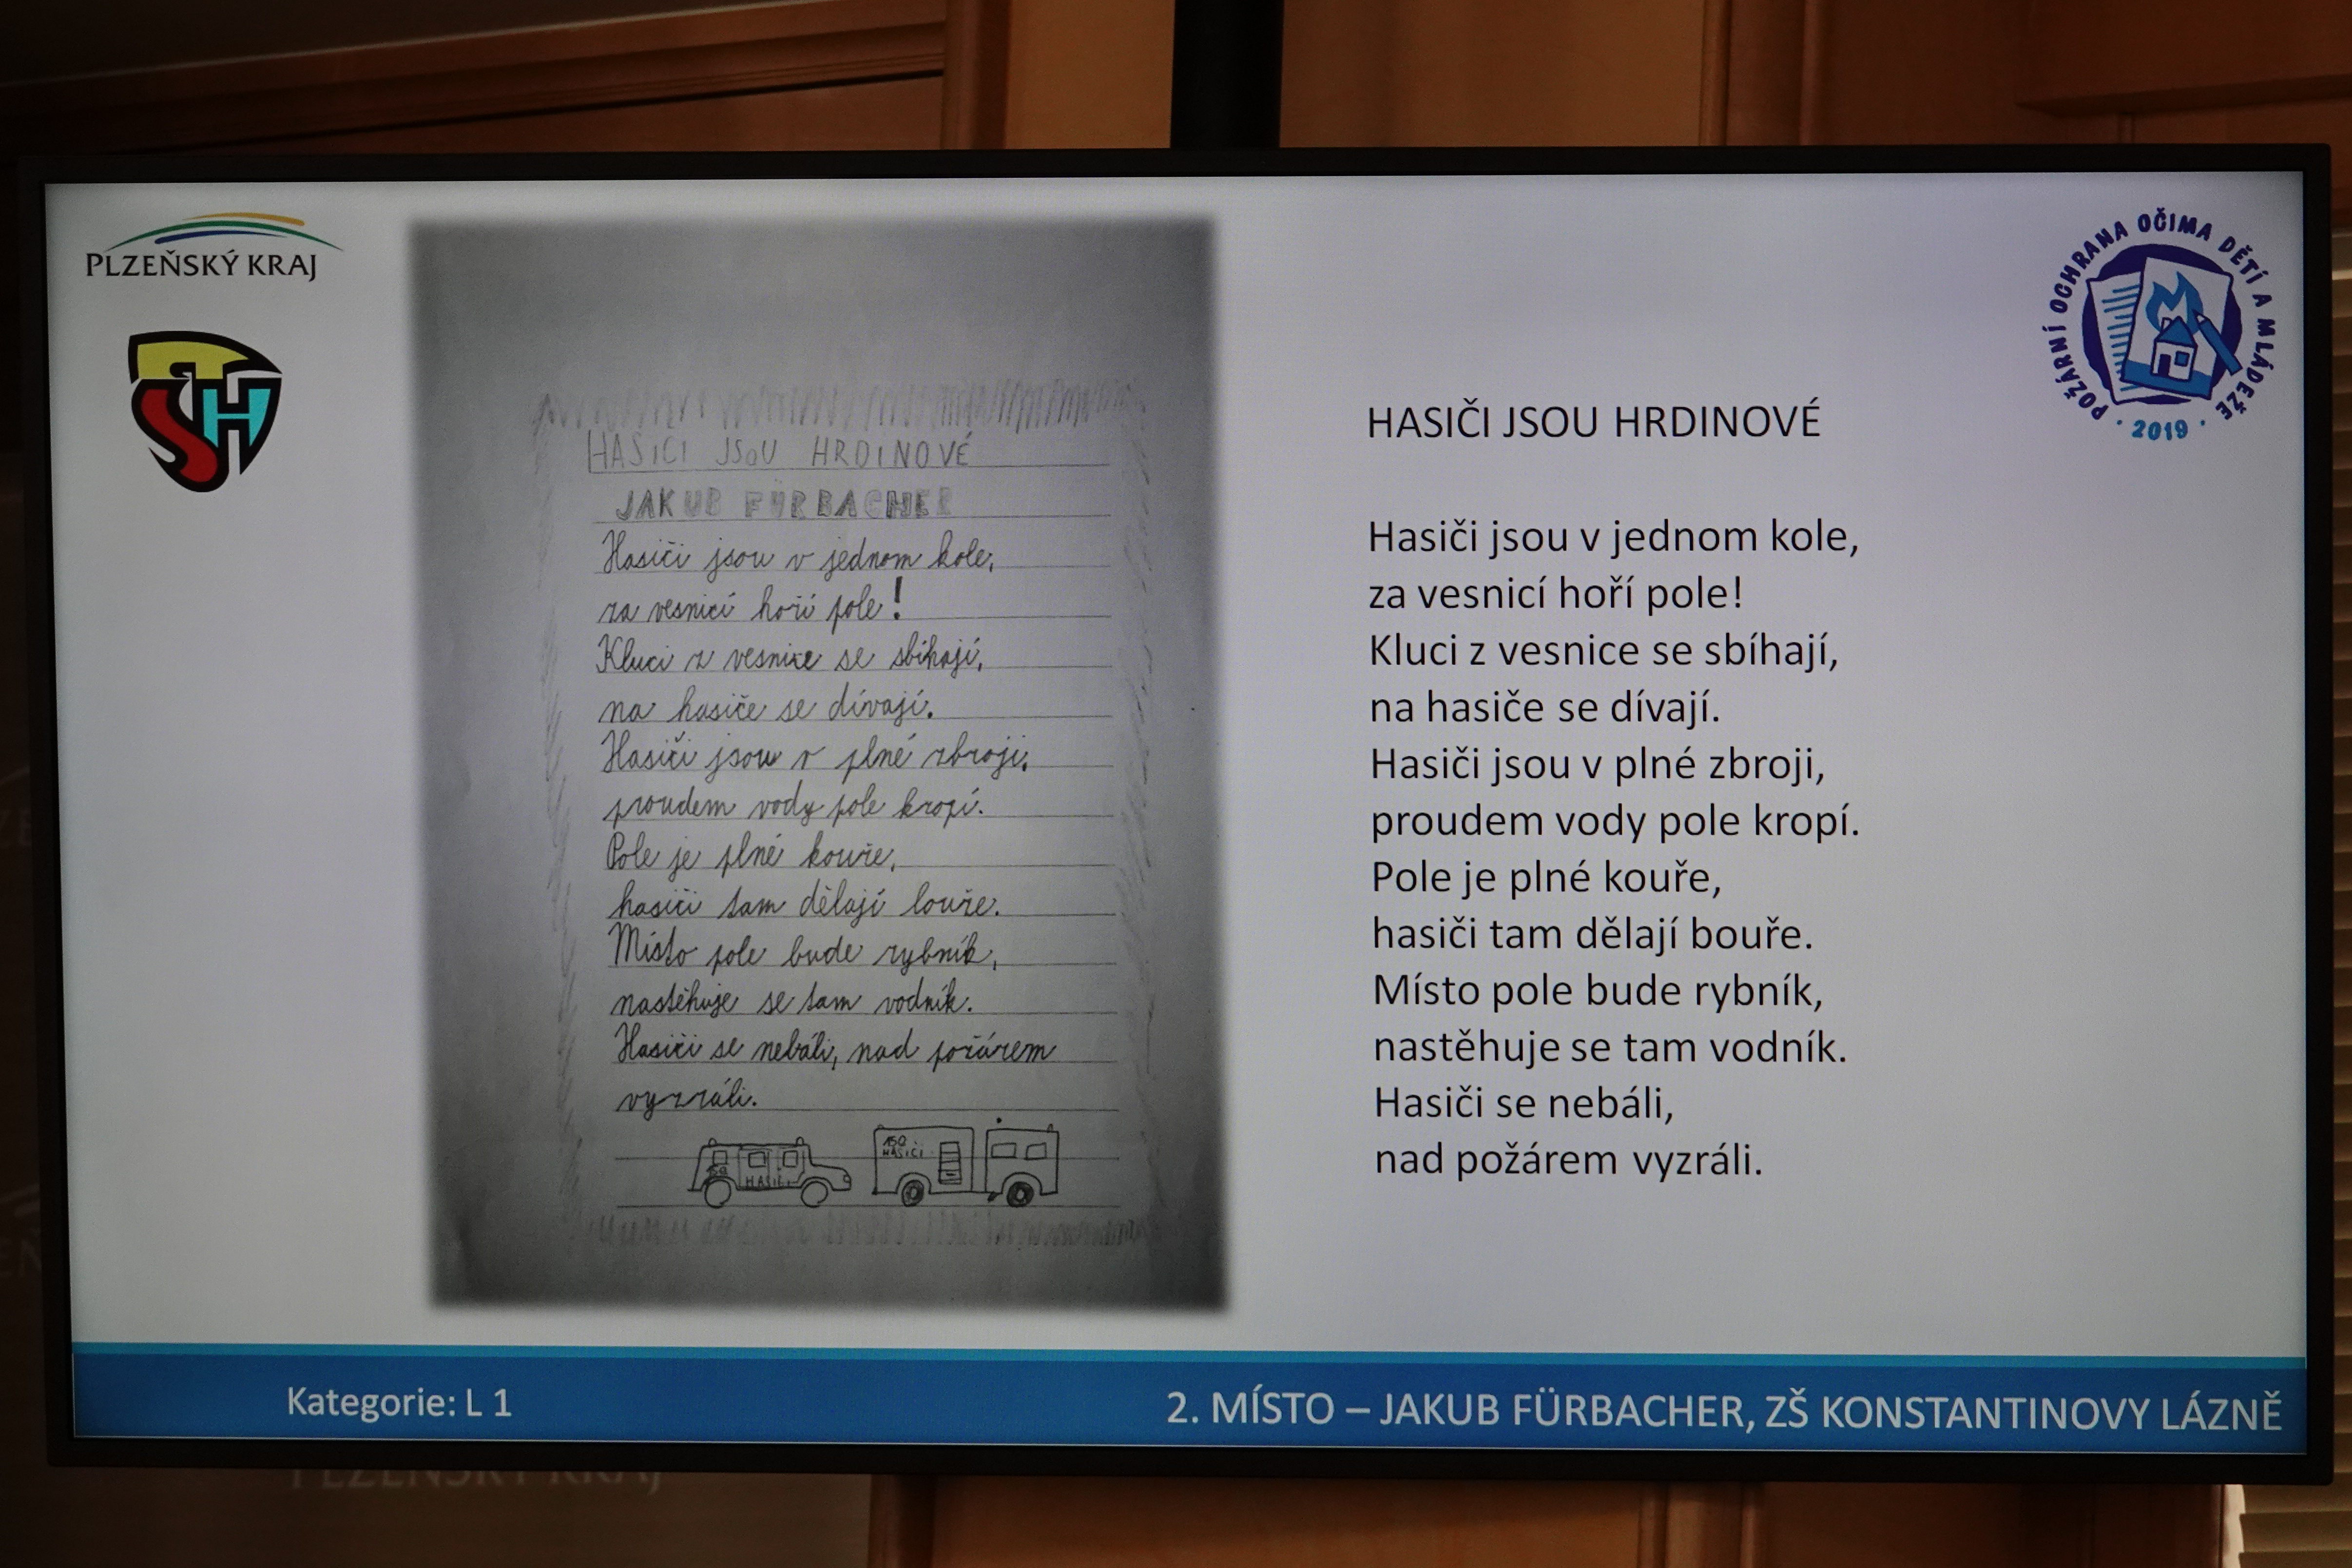 PLZEŇSKÝ KRAJ
SH
POŽÁRNÍ OCHRANA OČIMA DĚTÍ A MLÁDEŽE
· 2019 ·
HASIČI JSOU HRDINOVÉ
JAKUB FÜRBACHER
Hasiči jsou v jednom kole,
za vesnicí hoří pole!
Kluci z vesnice se sbíhají,
na hasiče se dívají.
Hasiči jsou v plné zbroji,
proudem vody pole kropí.
Pole je plné kouře,
hasiči tam dělají bouře.
Místo pole bude rybník,
nastěhuje se tam vodník.
Hasiči se nebáli, nad požárem
vyzráli.
150
HASIČI
150
HASIČI
HASIČI JSOU HRDINOVÉ
Hasiči jsou v jednom kole,
za vesnicí hoří pole!
Kluci z vesnice se sbíhají,
na hasiče se dívají.
Hasiči jsou v plné zbroji,
proudem vody pole kropí.
Pole je plné kouře,
hasiči tam dělají bouře.
Místo pole bude rybník,
nastěhuje se tam vodník.
Hasiči se nebáli,
nad požárem vyzráli.
Kategorie: L 1
2. MÍSTO – JAKUB FÜRBACHER, ZŠ KONSTANTINOVY LÁZNĚ
PLZEŇSKÝ KRAJ